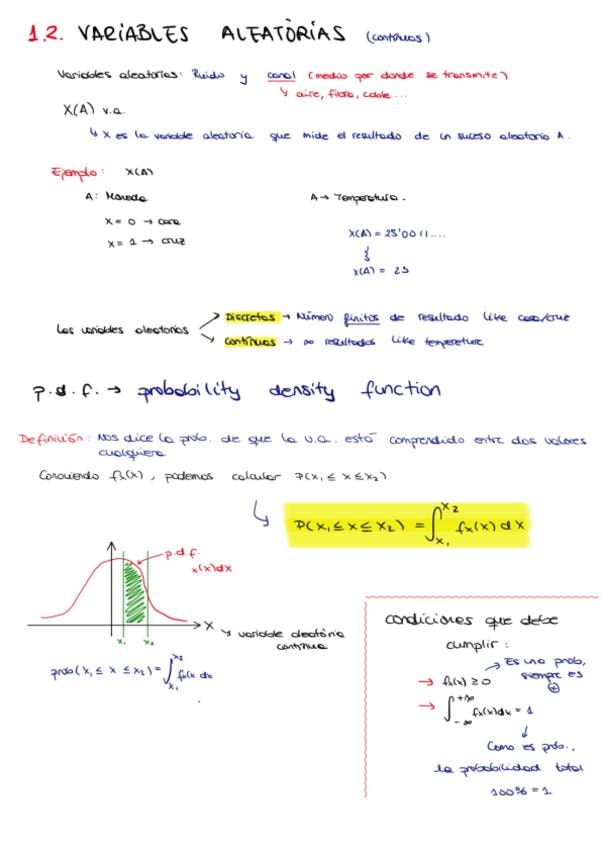 1.2. VARIABLES ALEATÒRIAS (continuas)
Variables aleatorias: Ruido y canal (medio por donde se transmite)
↳ aire, fibra, cable...
X(A) v.a.
↳ X es la variable aleatoria que mide el resultado de un suceso aleatorio A.
Ejemplo: X(A)
A: Moneda
X = 0 → cara
X = 1 → cruz
A → Temperatura.
X(A) = 25'0011....
X(A) = 25
Las variables aleatorias
Discretas → Número finitos de resultado like cara/cruz
Contínuas → ∞ resultados like temperatura
p.d.f. → probability density function
Definición: Nos dice la prob. de que la v.a. está comprendido entre dos valores
cualquiera
Conociendo fx(x), podemos calcular P(x₁ ≤ x ≤ x₂)
↳ P(x₁ ≤ x ≤ x₂) = ∫x₁^x₂ fx(x) dx
p.d.f.
x(x)dx
x₁ x₂
X
↳ variable aleatòria
continua
prob(x₁ ≤ x ≤ x₂) = ∫x₁^x₂ fx(x dx
condiciones que debe
cumplir:
→ fx(x) ≥ 0
→ Es una prob,
siempre es
⊕
→ ∫-∞^+∞ fx(x)dx = 1
↓
Como es prob.,
la probabilidad total
100% = 1